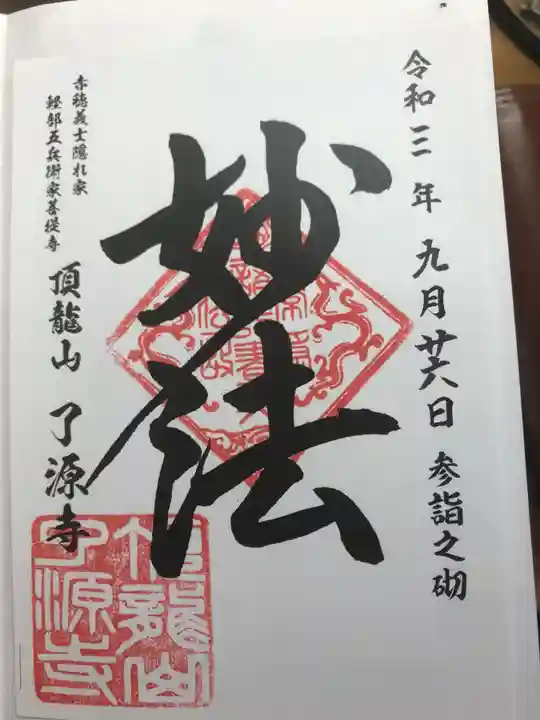 令和三年九月廿六日 参詣之砌
妙法
赤穂義士隠れ家
軽部五兵衛家菩提寺
頂龍山 了源寺